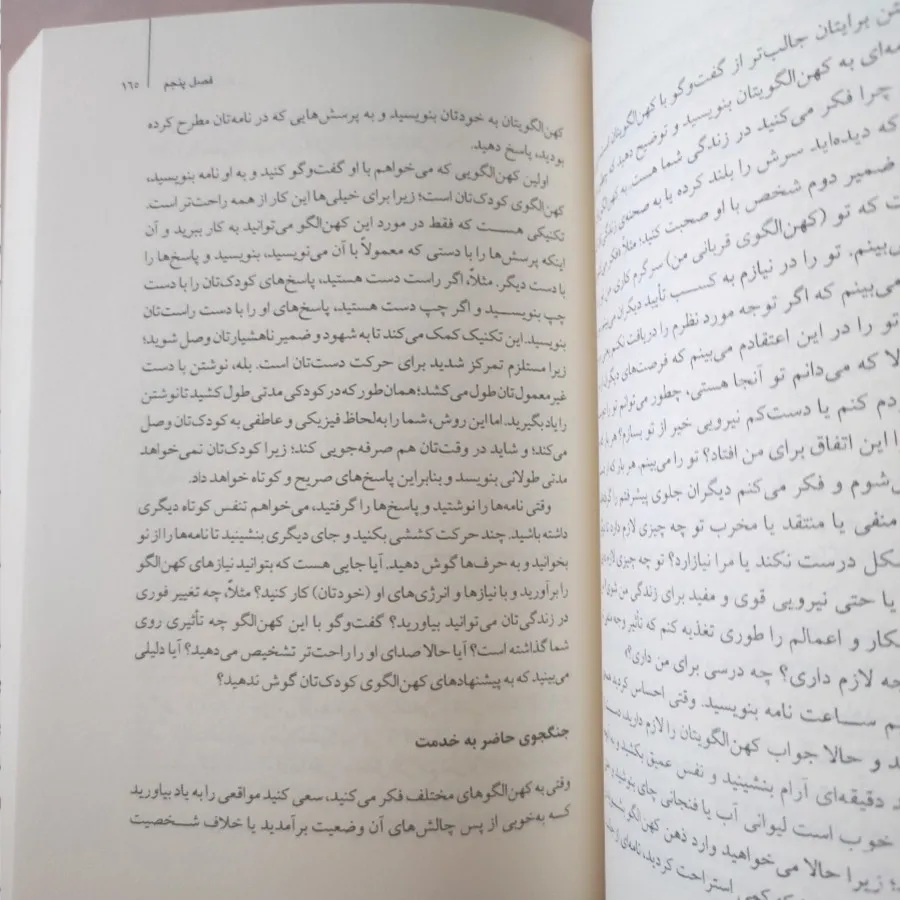 فصل پنجم ۱۶۵
کهن‌الگویتان به خودتان بنویسید و به پرسش‌هایی که در نامه‌تان مطرح کرده
بودید، پاسخ دهید.
اولین کهن‌الگویی که می‌خواهم با او گفت‌وگو کنید و به او نامه بنویسید،
کهن‌الگوی کودک‌تان است؛ زیرا برای خیلی‌ها این کار از همه راحت‌تر است.
تکنیکی هست که فقط در مورد این کهن‌الگو می‌توانید به کار ببرید و آن
اینکه پرسش‌ها را با دستی که معمولاً با آن می‌نویسید، بنویسید و پاسخ‌ها را
با دست دیگر. مثلاً، اگر راست دست هستید، پاسخ‌های کودک‌تان را با دست
چپ بنویسید و اگر چپ دست هستید، پاسخ‌های او را با دست راست‌تان
بنویسید. این تکنیک کمک می‌کند تا به شهود و ضمیر ناهشیارتان وصل شوید؛
زیرا مستلزم تمرکز شدید برای حرکت دست‌تان است. بله، نوشتن با دست
غیر معمول‌تان طول می‌کشد؛ همان‌طور که در کودکی مدتی طول کشید تا نوشتن
را یاد بگیرید. اما این روش، شما را به‌لحاظ فیزیکی و عاطفی به کودک‌تان وصل
می‌کند؛ و شاید در وقت‌تان هم صرفه‌جویی کند؛ زیرا کودک‌تان نمی‌خواهد
مدتی طولانی بنویسد و بنابراین پاسخ‌های صریح و کوتاه خواهد داد.
وقتی نامه‌ها را نوشتید و پاسخ‌ها را گرفتید، می‌خواهم تنفس کوتاه دیگری
داشته باشید. چند حرکت کششی بکنید و جای دیگری بنشینید تا نامه‌ها را از نو
بخوانید و به حرف‌ها گوش دهید. آیا جایی هست که بتوانید نیازهای کهن‌الگو
را برآورید و با نیازها و انرژی‌های او (خودتان) کار کنید؟ مثلاً، چه تغییر فوری
در زندگی‌تان می‌توانید بیاورید؟ گفت‌وگو با این کهن‌الگو چه تأثیری روی
شما گذاشته است؟ آیا حالا صدای او را راحت‌تر تشخیص می‌دهید؟ آیا دلیلی
می‌بینید که به پیشنهادهای کهن‌الگوی کودک‌تان گوش ندهید؟
جنگجوی حاضر به خدمت
وقتی به کهن‌الگوهای مختلف فکر می‌کنید، سعی کنید مواقعی را به یاد بیاورید
که به‌خوبی از پس چالش‌های آن وضعیت برآمدید یا خلاف شخصیت
برایتان جالب‌تر از گفت‌وگو با کهن‌الگویتان
به کهن‌الگویتان بنویسید و توضیح دهید که
چرا فکر می‌کنید در زندگی شما هست. به
که دیده‌اید سرش را بلند کرده یا به صحنه‌ی زندگی
ضمیر دوم شخص با او صحبت کنید؛ مثلاً
که تو (کهن‌الگوی قربانی من) سرگرم کاری
می‌بینم. تو را در نیازم به کسب تأیید دیگران
می‌بینم که اگر توجه مورد نظرم را دریافت نکنم
تو را در این اعتقادم می‌بینم که فرصت‌های دیگران
که می‌دانم تو آنجا هستی، چطور می‌توانم تو را
کنم یا دست‌کم نیرویی خیر از تو بسازم؟ هر بار
این اتفاق برای من افتاد؟ تو را می‌بینم. هر بار که از
و فکر می‌کنم دیگران جلوی پیشرفتم را
منفی یا منتقد یا مخرب تو چه چیزی لازم دارد تا
درست نکند یا مرا نیازارد؟ تو چه چیزی لازم
یا حتی نیرویی قوی و مفید برای زندگی من شوی؟
و اعمالم را طوری تغذیه کنم که تأثیر وجه
لازم داری؟ چه درسی برای من داری؟
ساعت نامه بنویسید. وقتی احساس کردید
و حالا جواب کهن‌الگویتان را لازم دارید، دست
دقیقه‌ای آرام بنشینید و نفس عمیق بکشید و
خوب است لیوانی آب یا فنجانی چای بنوشید و
زیرا حالا می‌خواهید وارد ذهن کهن‌الگو شوید
استراحت کردید، نامه‌ای از